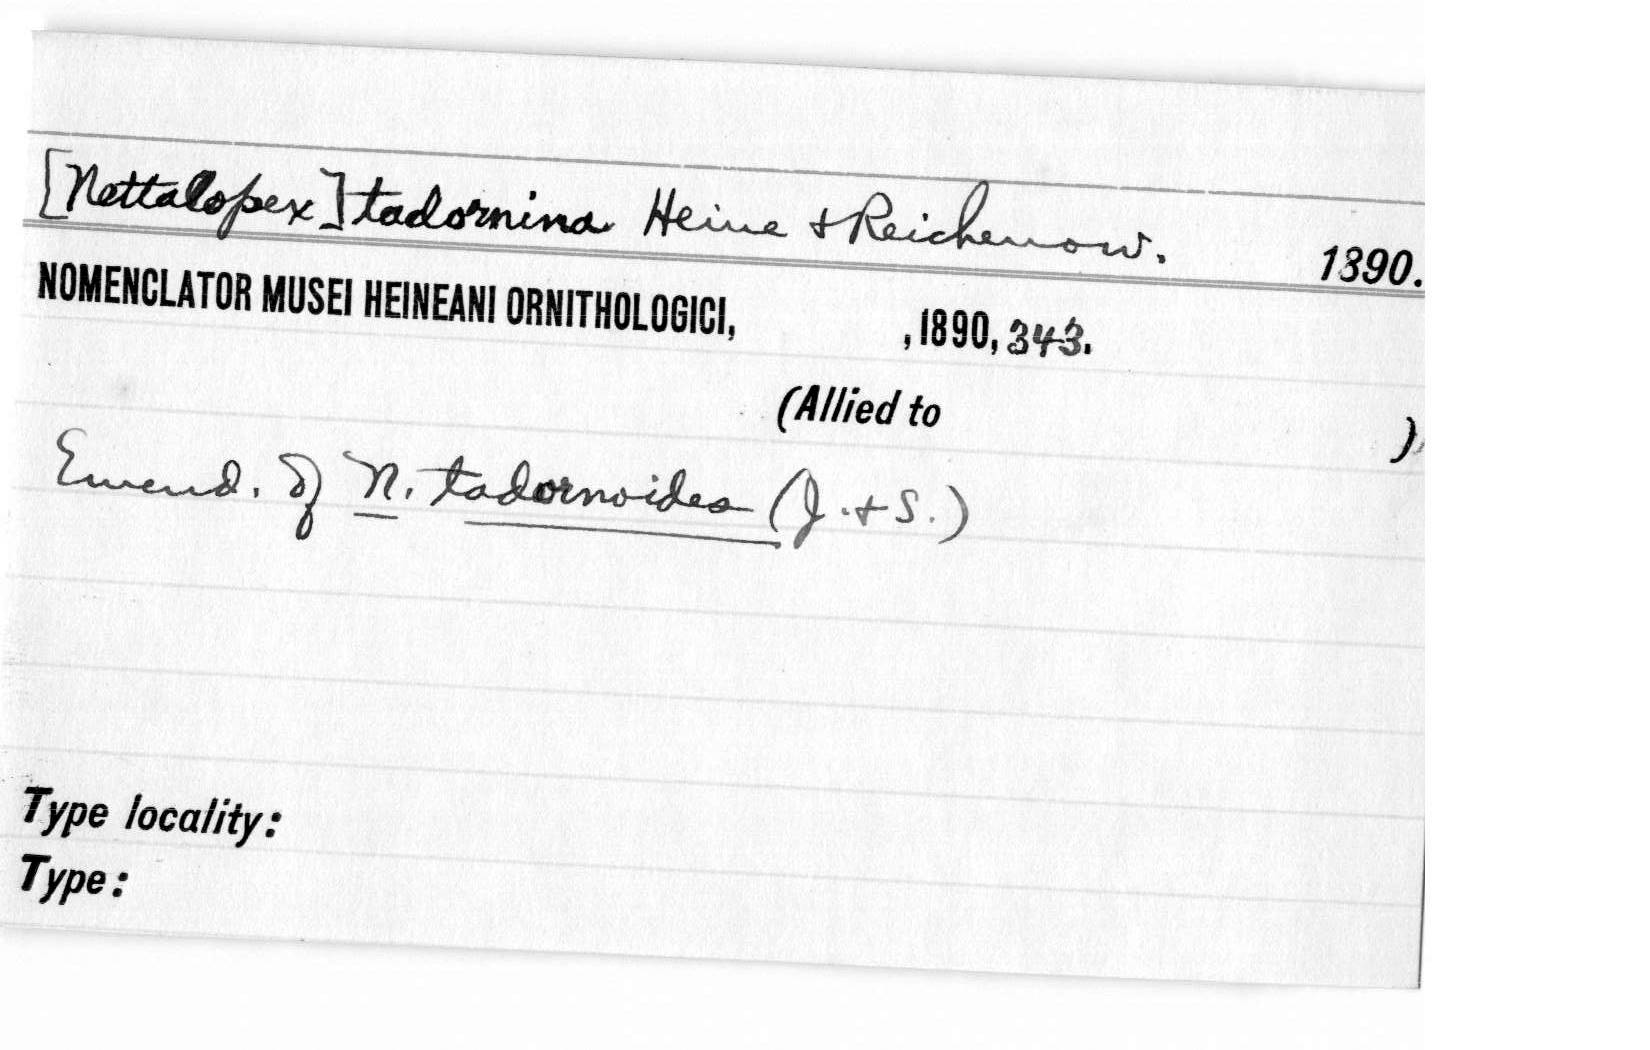 [Nettalopex] tadornina Heine & Reichenow. 1890.
NOMENCLATOR MUSEI HEINEANI ORNITHOLOGICI, , 1890, 343.
(Allied to )
Emend. of N. tadornoides (J. & S.)
Type locality:
Type: